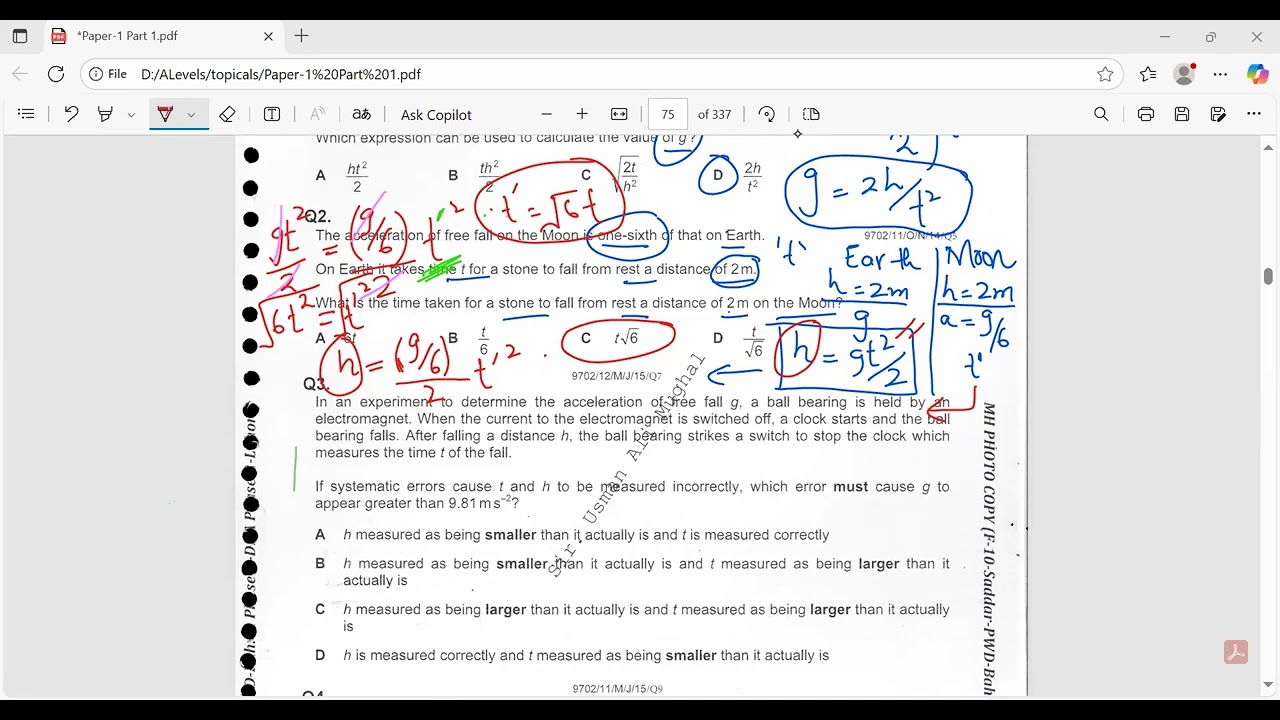 *Paper-1 Part 1.pdf
File D:/ALevels/topicals/Paper-1%20Part%201.pdf
aあ Ask Copilot 75 of 337
Which expression can be used to calculate the value of g?
A ht²/2 B th²/2 C √(2t/h²) D 2h/t²
g = 2h/t²
∴ t' = √6t
Q2.
9702/11/O/N/14/Q5
The acceleration of free fall on the Moon is one-sixth of that on Earth.
On Earth it takes time t for a stone to fall from rest a distance of 2 m.
What is the time taken for a stone to fall from rest a distance of 2 m on the Moon?
A 6t B t/6 C t√6 D t/√6
gt²/2 = (g/6) t'²/2
√6t² = √t'²
h = (g/6)/2 t'²
't'
Earth
h = 2m
g
h = gt²/2
Moon
h = 2m
a = g/6
t'
9702/12/M/J/15/Q7
Q3.
In an experiment to determine the acceleration of free fall g, a ball bearing is held by an
electromagnet. When the current to the electromagnet is switched off, a clock starts and the ball
bearing falls. After falling a distance h, the ball bearing strikes a switch to stop the clock which
measures the time t of the fall.
If systematic errors cause t and h to be measured incorrectly, which error must cause g to
appear greater than 9.81 m s⁻²?
A h measured as being smaller than it actually is and t is measured correctly
B h measured as being smaller than it actually is and t measured as being larger than it
actually is
C h measured as being larger than it actually is and t measured as being larger than it actually
is
D h is measured correctly and t measured as being smaller than it actually is
9702/11/M/J/15/Q9
Q4
Sir. Usman Ali Mughal
MH PHOTO COPY (F-10-Saddar-PWD-Bah